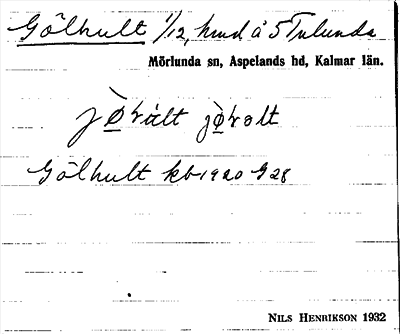 Gölhult 1/12, hmd å 5 Tulunda
Mörlunda sn, Aspelands hd, Kalmar län.
Gölhult kb 1920 G28
NILS HENRIKSON 1932